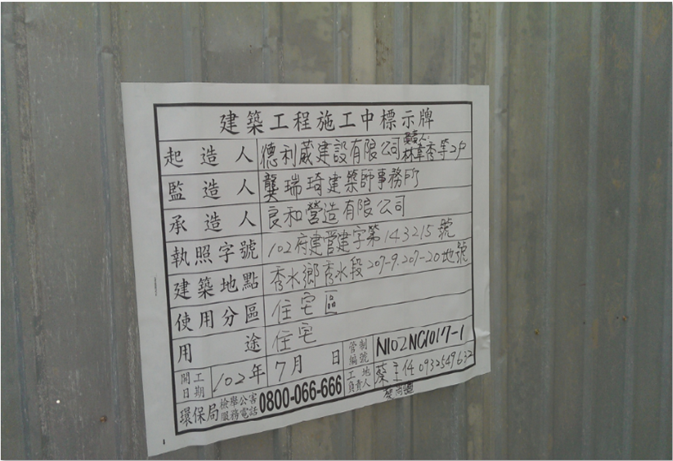 建築工程施工中標示牌
起造人 德利葳建設有限公司 負責人: 林章秀等2戶
監造人 龔瑞琦建築師事務所
承造人 良和營造有限公司
執照字號 102府建管建字第143215號
建築地點 秀水鄉秀水段207-9.207-20地號
使用分區 住宅區
用途 住宅
開工日期 102年7月 日 管制編號 N102NC1017-1
環保局 檢舉公害服務電話 0800-066-666 工地負責人 蔡主任 0932549632